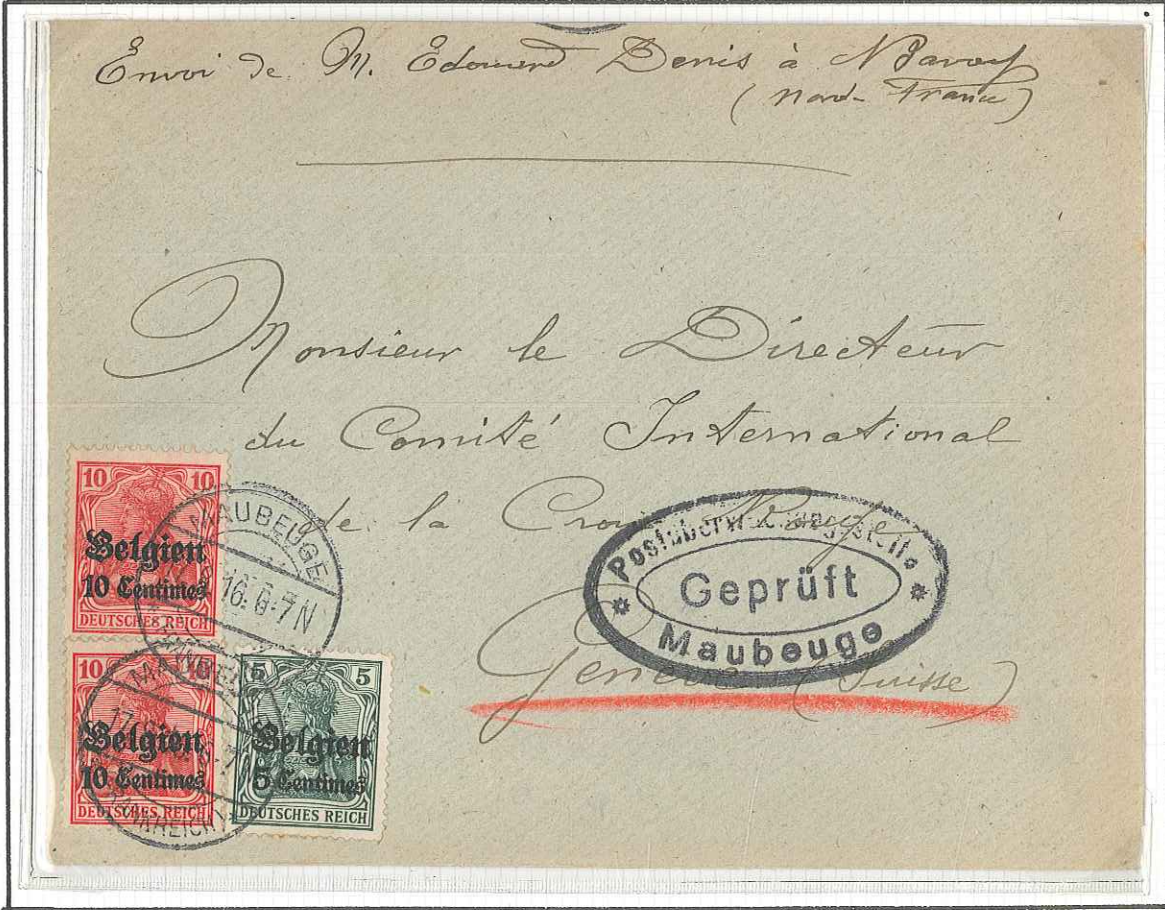 Envoi de M. Edouard Denis à Bavay
(Nord-France)
Monsieur le Directeur
du Comité International
de la Croix Rouge
Genève (Suisse)
Postüberwachungsstelle
Geprüft
Maubeuge
10 10
Belgien
10 Centimes
DEUTSCHES REICH
MAUBEUGE
16. 6-7N
10 10
Belgien
10 Centimes
DEUTSCHES REICH
5 5
Belgien
5 Centimes
DEUTSCHES REICH